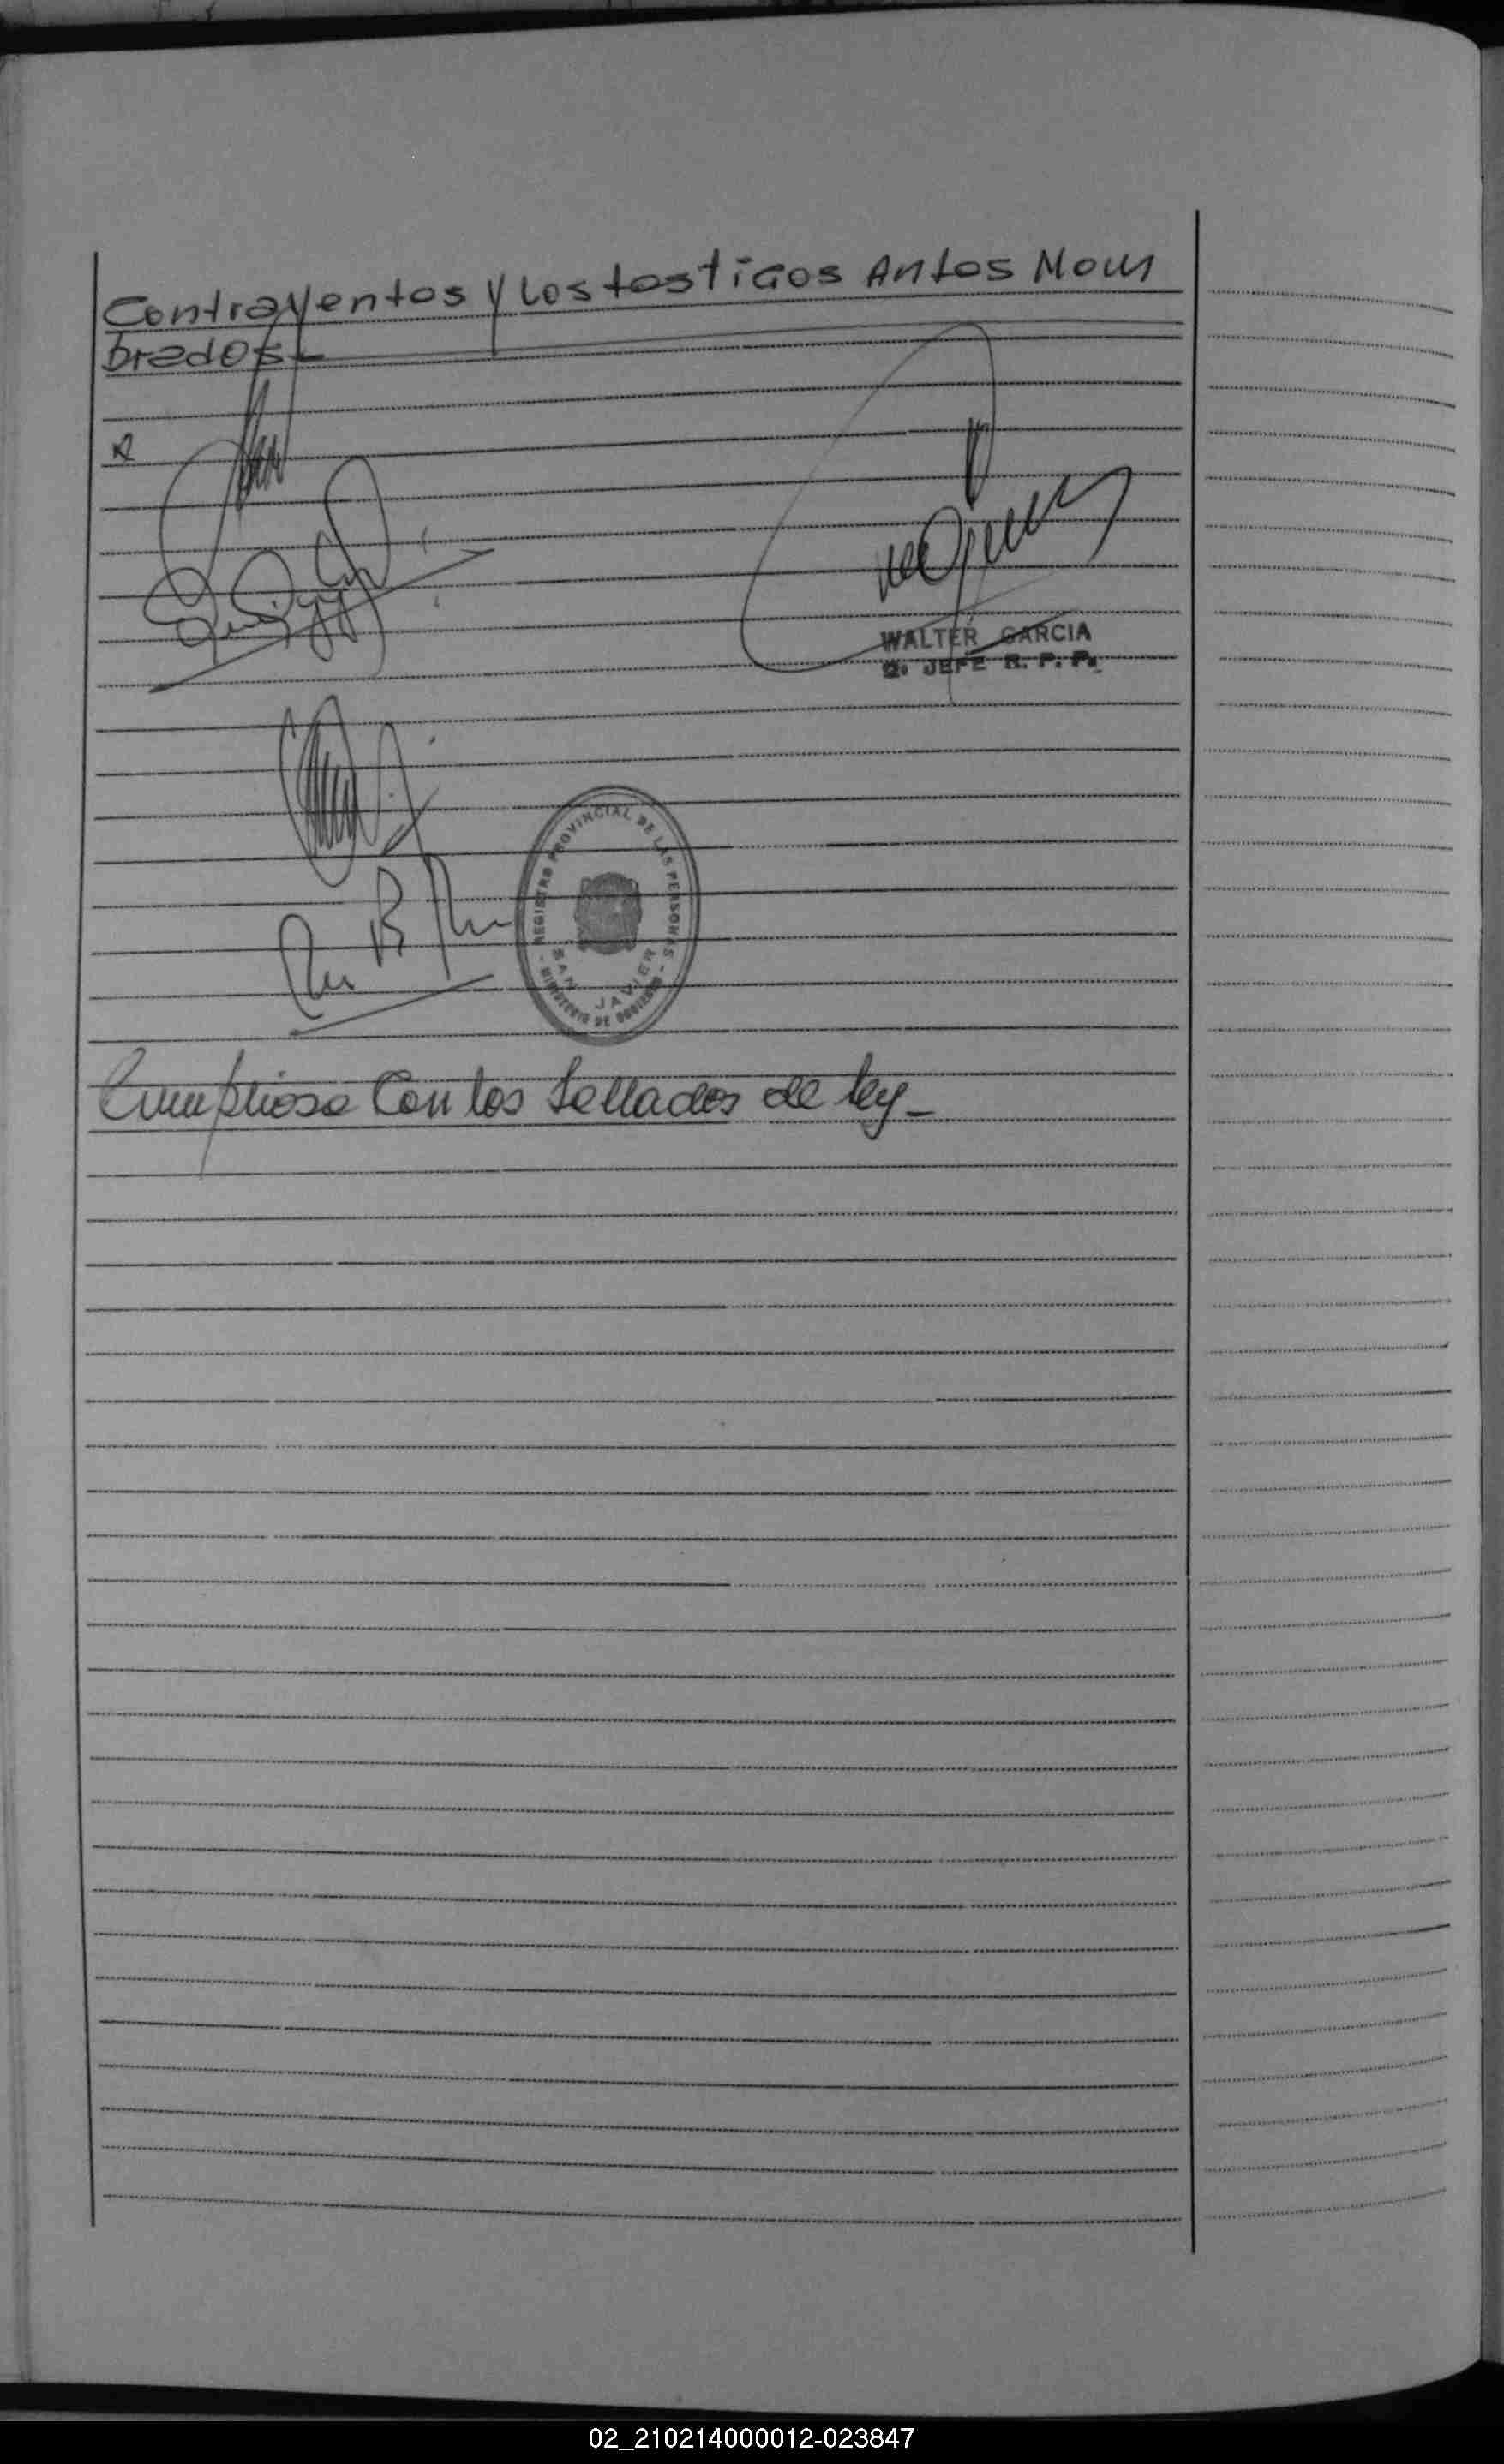 Contrayentes y los testigos Antes Nom
brados.-
WALTER GARCIA
O. JEFE R. P. P.
REGISTRO PROVINCIAL DE LAS PERSONAS
- MINISTERIO DE GOBIERNO -
SAN JAVIER
Cumpliose Con los Sellados de ley -
02_210214000012-023847